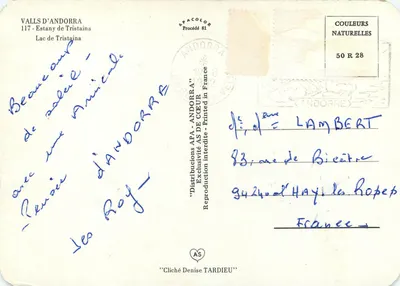 VALLS D'ANDORRA
117 - Estany de Tristaina
Lac de Tristaina
SPACOLOR
Procédé 81
COULEURS
NATURELLES
50 R 28
ANDORRA
Beaucoup
de soleil -
avec une Amicale
Pensée
d'ANDORRE
les Roy -
"Distributions APA - ANDORRA"
Exclusivité AS DE CŒUR
Reproduction interdite - Printed in France
LAMBERT
83, rue de Bicêtre
94240 L'HAY les Roses
France
AS
"Cliché Denise TARDIEU"